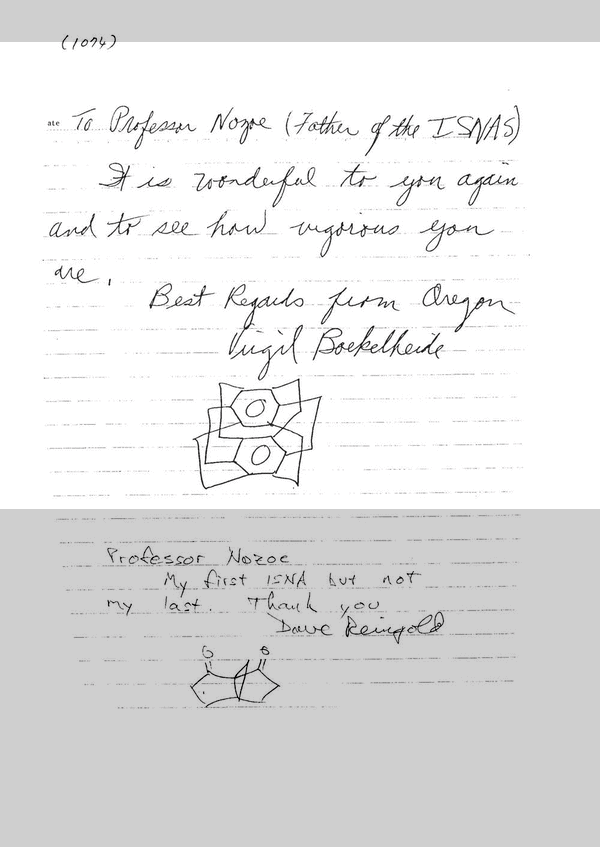 (1074)
ate To Professor Nozoe (Father of the ISNAS)
It is wonderful to you again
and to see how vigorous you
are.
Best Regards from Oregon
Virgil Boekelheide
Professor Nozoe
My first ISNA but not
my last. Thank you
Dave Reingold
O O